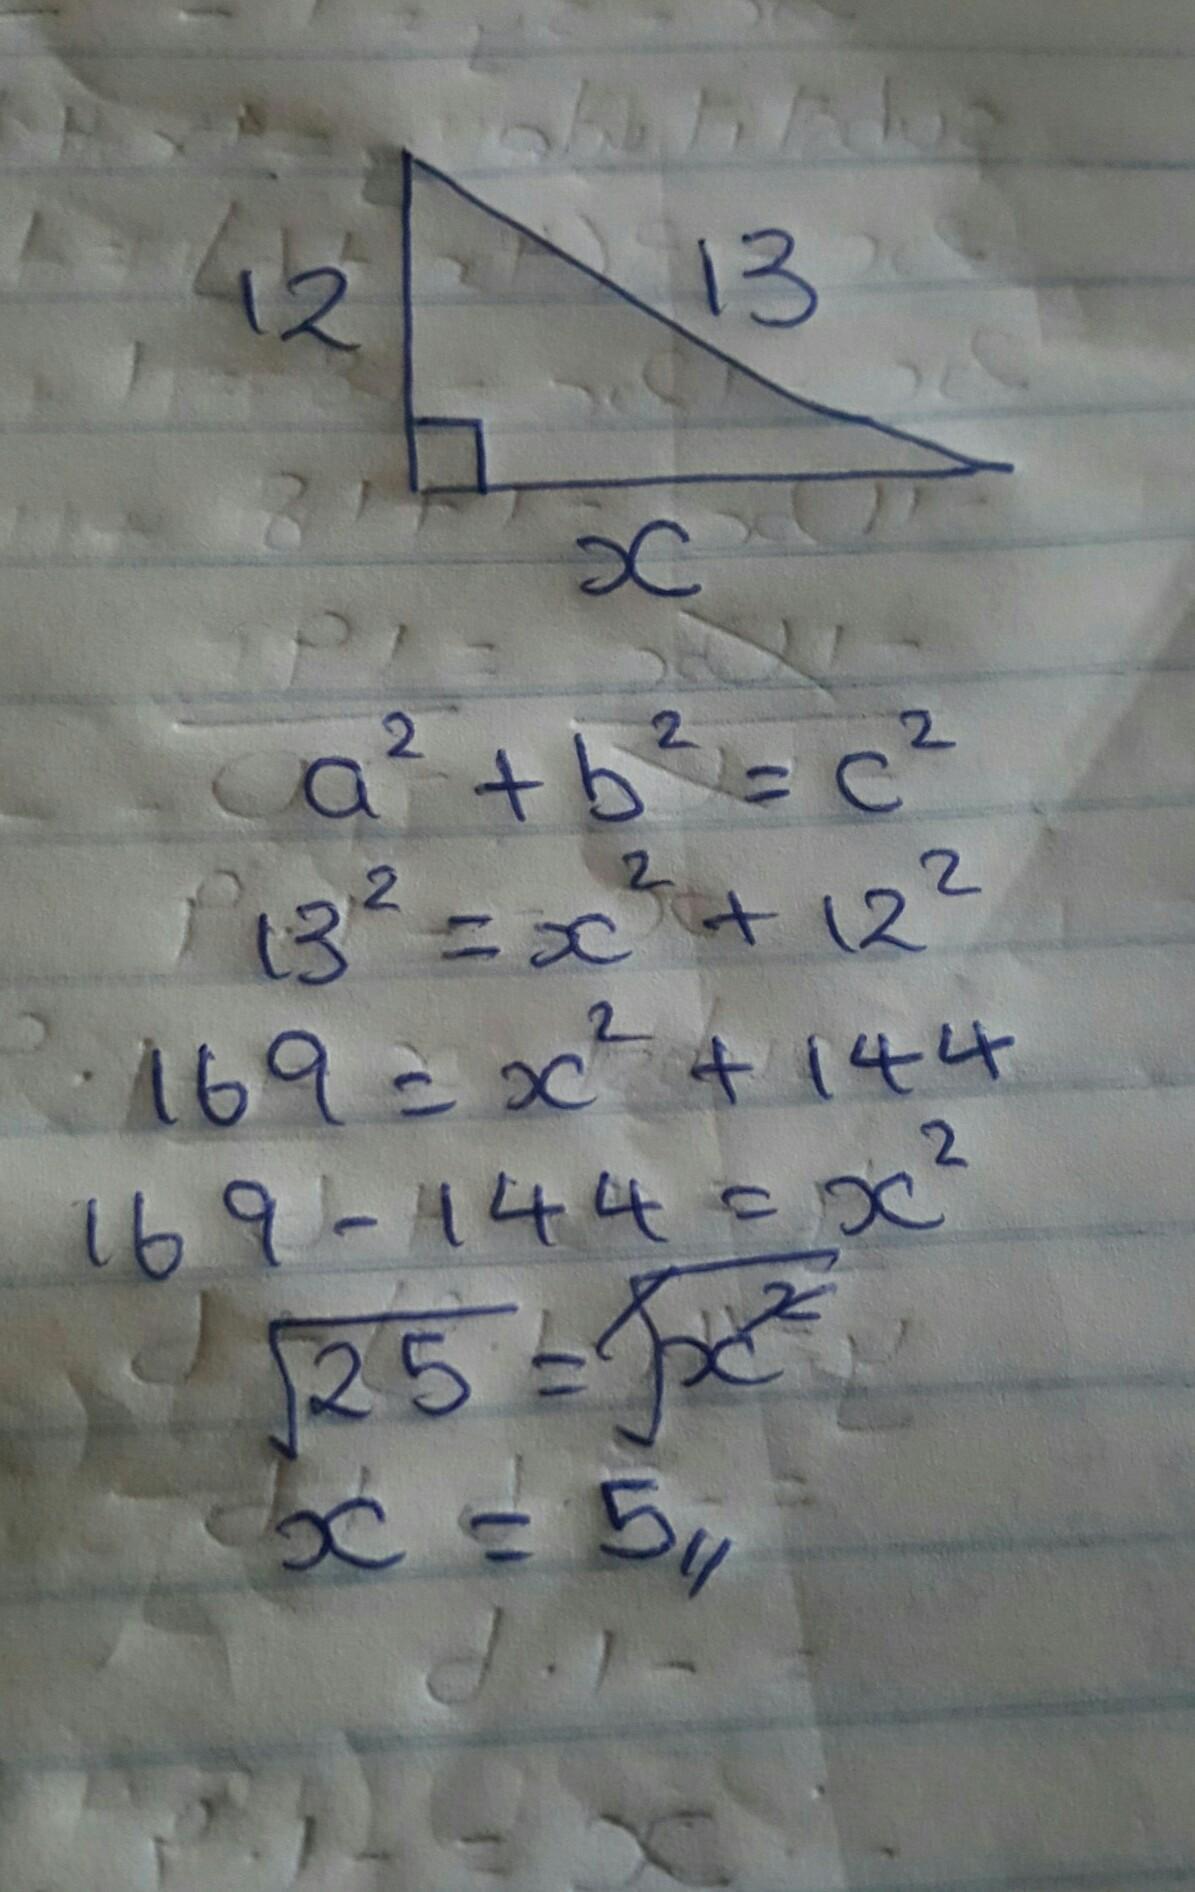 12
13
x
a² + b² = c²
13² = x² + 12²
169 = x² + 144
169 - 144 = x²
√25 = √x²
x = 5,,